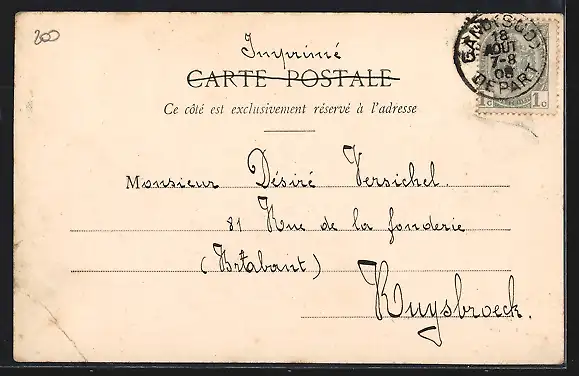 200
Imprimé
CARTE POSTALE
Ce côté est exclusivement réservé à l'adresse
GAND (SUD)
18
AOUT
7-8
08
DEPART
1c 1c
Monsieur Désiré Versichel.
81 Rue de la fonderie
(Brabant)
Ruysbroeck.